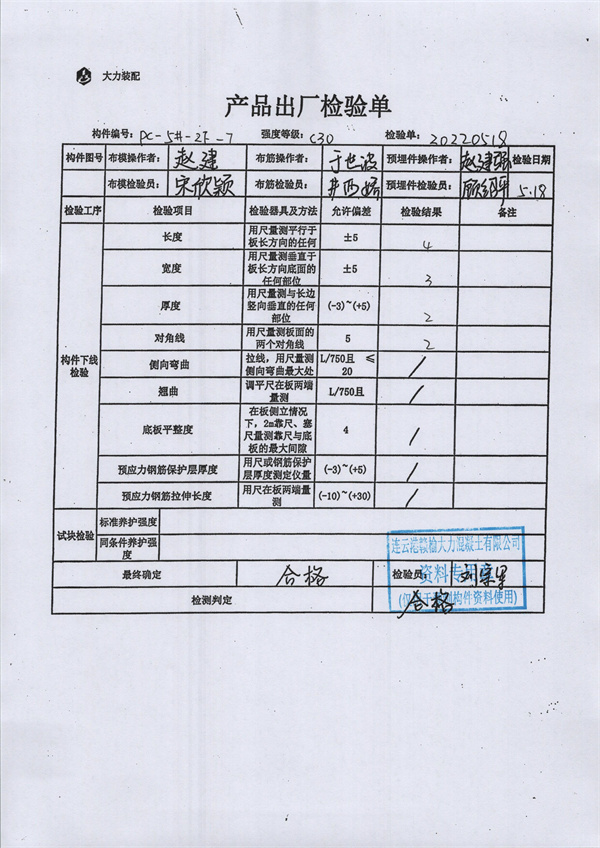 大力装配
产品出厂检验单
构件编号: PC-5#-2F-7 强度等级: C30 检验单: 20220518
构件图号 布模操作者: 赵建 布筋操作者: 于世波 预埋件操作者: 赵建强 检验日期
布模检验员: 宋欣颖 布筋检验员: 预埋件检验员: 5.18
检验工序 检验项目 检验器具及方法 允许偏差 检验结果 备注
构件下线检验
长度 用尺量测平行于板长方向的任何 ±5 4
宽度 用尺量测垂直于板长方向底面的任何部位 ±5 3
厚度 用尺量测与长边竖向垂直的任何部位 (-3)~(+5) 2
对角线 用尺量测板面的两个对角线 5 2
侧向弯曲 拉线,用尺量测侧向弯曲最大处 L/750且 ≤20 /
翘曲 调平尺在板两端量测 L/750且 /
底板平整度 在板侧立情况下,2m靠尺、塞尺量测靠尺与底板的最大间隙 4 /
预应力钢筋保护层厚度 用尺或钢筋保护层厚度测定仪量 (-3)~(+5) /
预应力钢筋拉伸长度 用尺在板两端量测 (-10)~(+30) /
试块检验 标准养护强度
同条件养护强度
最终确定 合格 检验员:
检测判定 合格
连云港赣榆大力混凝土有限公司
资料专用章